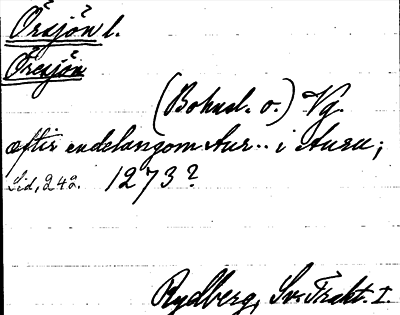 Örsjön l.
Öresjön
(Bohusl. o.) Vg.
æftir endelangom Aur.. i Auru;
Lid, 242. 1273?
Rydberg, Sv. Trakt. I.